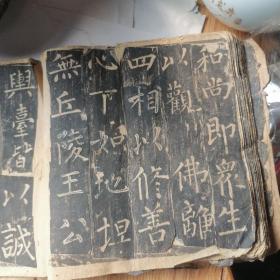 和尚即衆生
以觀佛離
四相以修善
心下如地坦
無丘陵王公
輿臺皆以誠